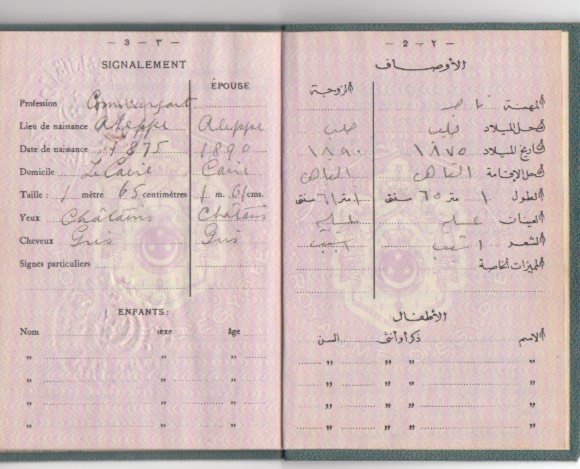 — 3 — ٣ —
SIGNALEMENT
ÉPOUSE
Profession Commerçant
Lieu de naissance Aleppe Aleppe
Date de naissance 1875 1890
Domicile Le Caire Caire
Taille : 1 mètre 65 centimètres 1 m. 61 cms.
Yeux Châtains Châtains
Cheveux Gris Gris
Signes particuliers
ENFANTS :
Nom sexe âge
" " "
" " "
" " "
" " "
— 2 — ٢ —
الأوصاف
الزوجة
المهنة تاجر
محل الميلاد حلب حلب
تاريخ الميلاد ١٨٧٥ ١٨٩٠
محل الإقامة القاهرة القاهرة
الطول ١ متر ٦٥ سنتى ١ متر ٦١ سنتى
العينان
الشعر أشيب أشيب
المميزات الخاصة
الأطفال
الاسم ذكر أو أنثى السن
" " " "
" " " "
" " " "
" " " "